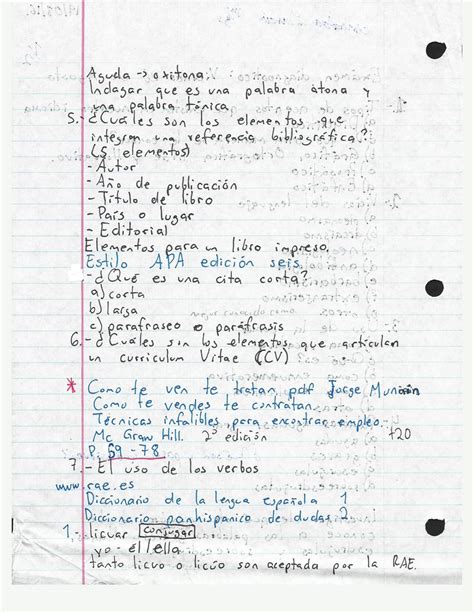 Aguda -> oxitona
Indagar que es una palabra átona y
una palabra tónica
5.- ¿Cuáles son los elementos que
integran una referencia bibliográfica?
(5 elementos)
- Autor
- Año de publicación
- Título de libro
- País o lugar
- Editorial
Elementos para un libro impreso.
Estilo APA edición seis.
- ¿Qué es una cita corta?
a) corta
b) larga
c) parafraseo o paráfrasis
6.- ¿Cuáles son los elementos que articulan
un curriculum Vitae (CV)
* Como te ven te tratan pdf Jorge
Como te vendes te contratan
Técnicas infalibles para encontrar empleo.
Mc Graw Hill. 2° edición t20
P. 69 - 78
7.- El uso de los verbos
www.rae.es
Diccionario de la lengua española 1
Diccionario panhispanico de dudas 2
1.- licuar conjugar
yo - el/ella
tanto licuo o licúo son aceptada por la RAE.